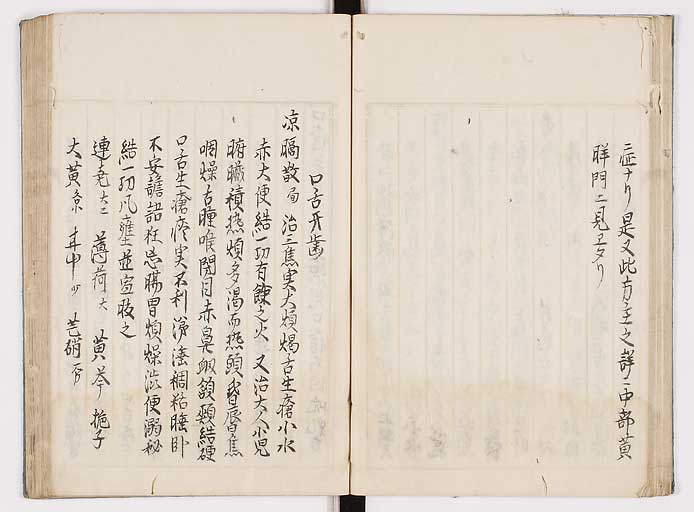 症ナリ是又此方主之詳ニ中部黄
胖門ニ見エタリ
口舌牙歯
凉膈散局 治三焦実火煩渇舌生瘡小水
赤大便結一切有餘之火 又治大人小児
腑臓積熱煩多渇面熱頭昏唇焦
咽燥舌腫喉閉目赤鼻衂頷頬結硬
口舌生瘡痰実不利涕唾稠粘睡卧
不安譫語狂忘腸胃煩燥澁便溺秘
結一切風壅並宜服之
連壳 薄荷 黄芩 梔子
大黄 甘中 芒硝